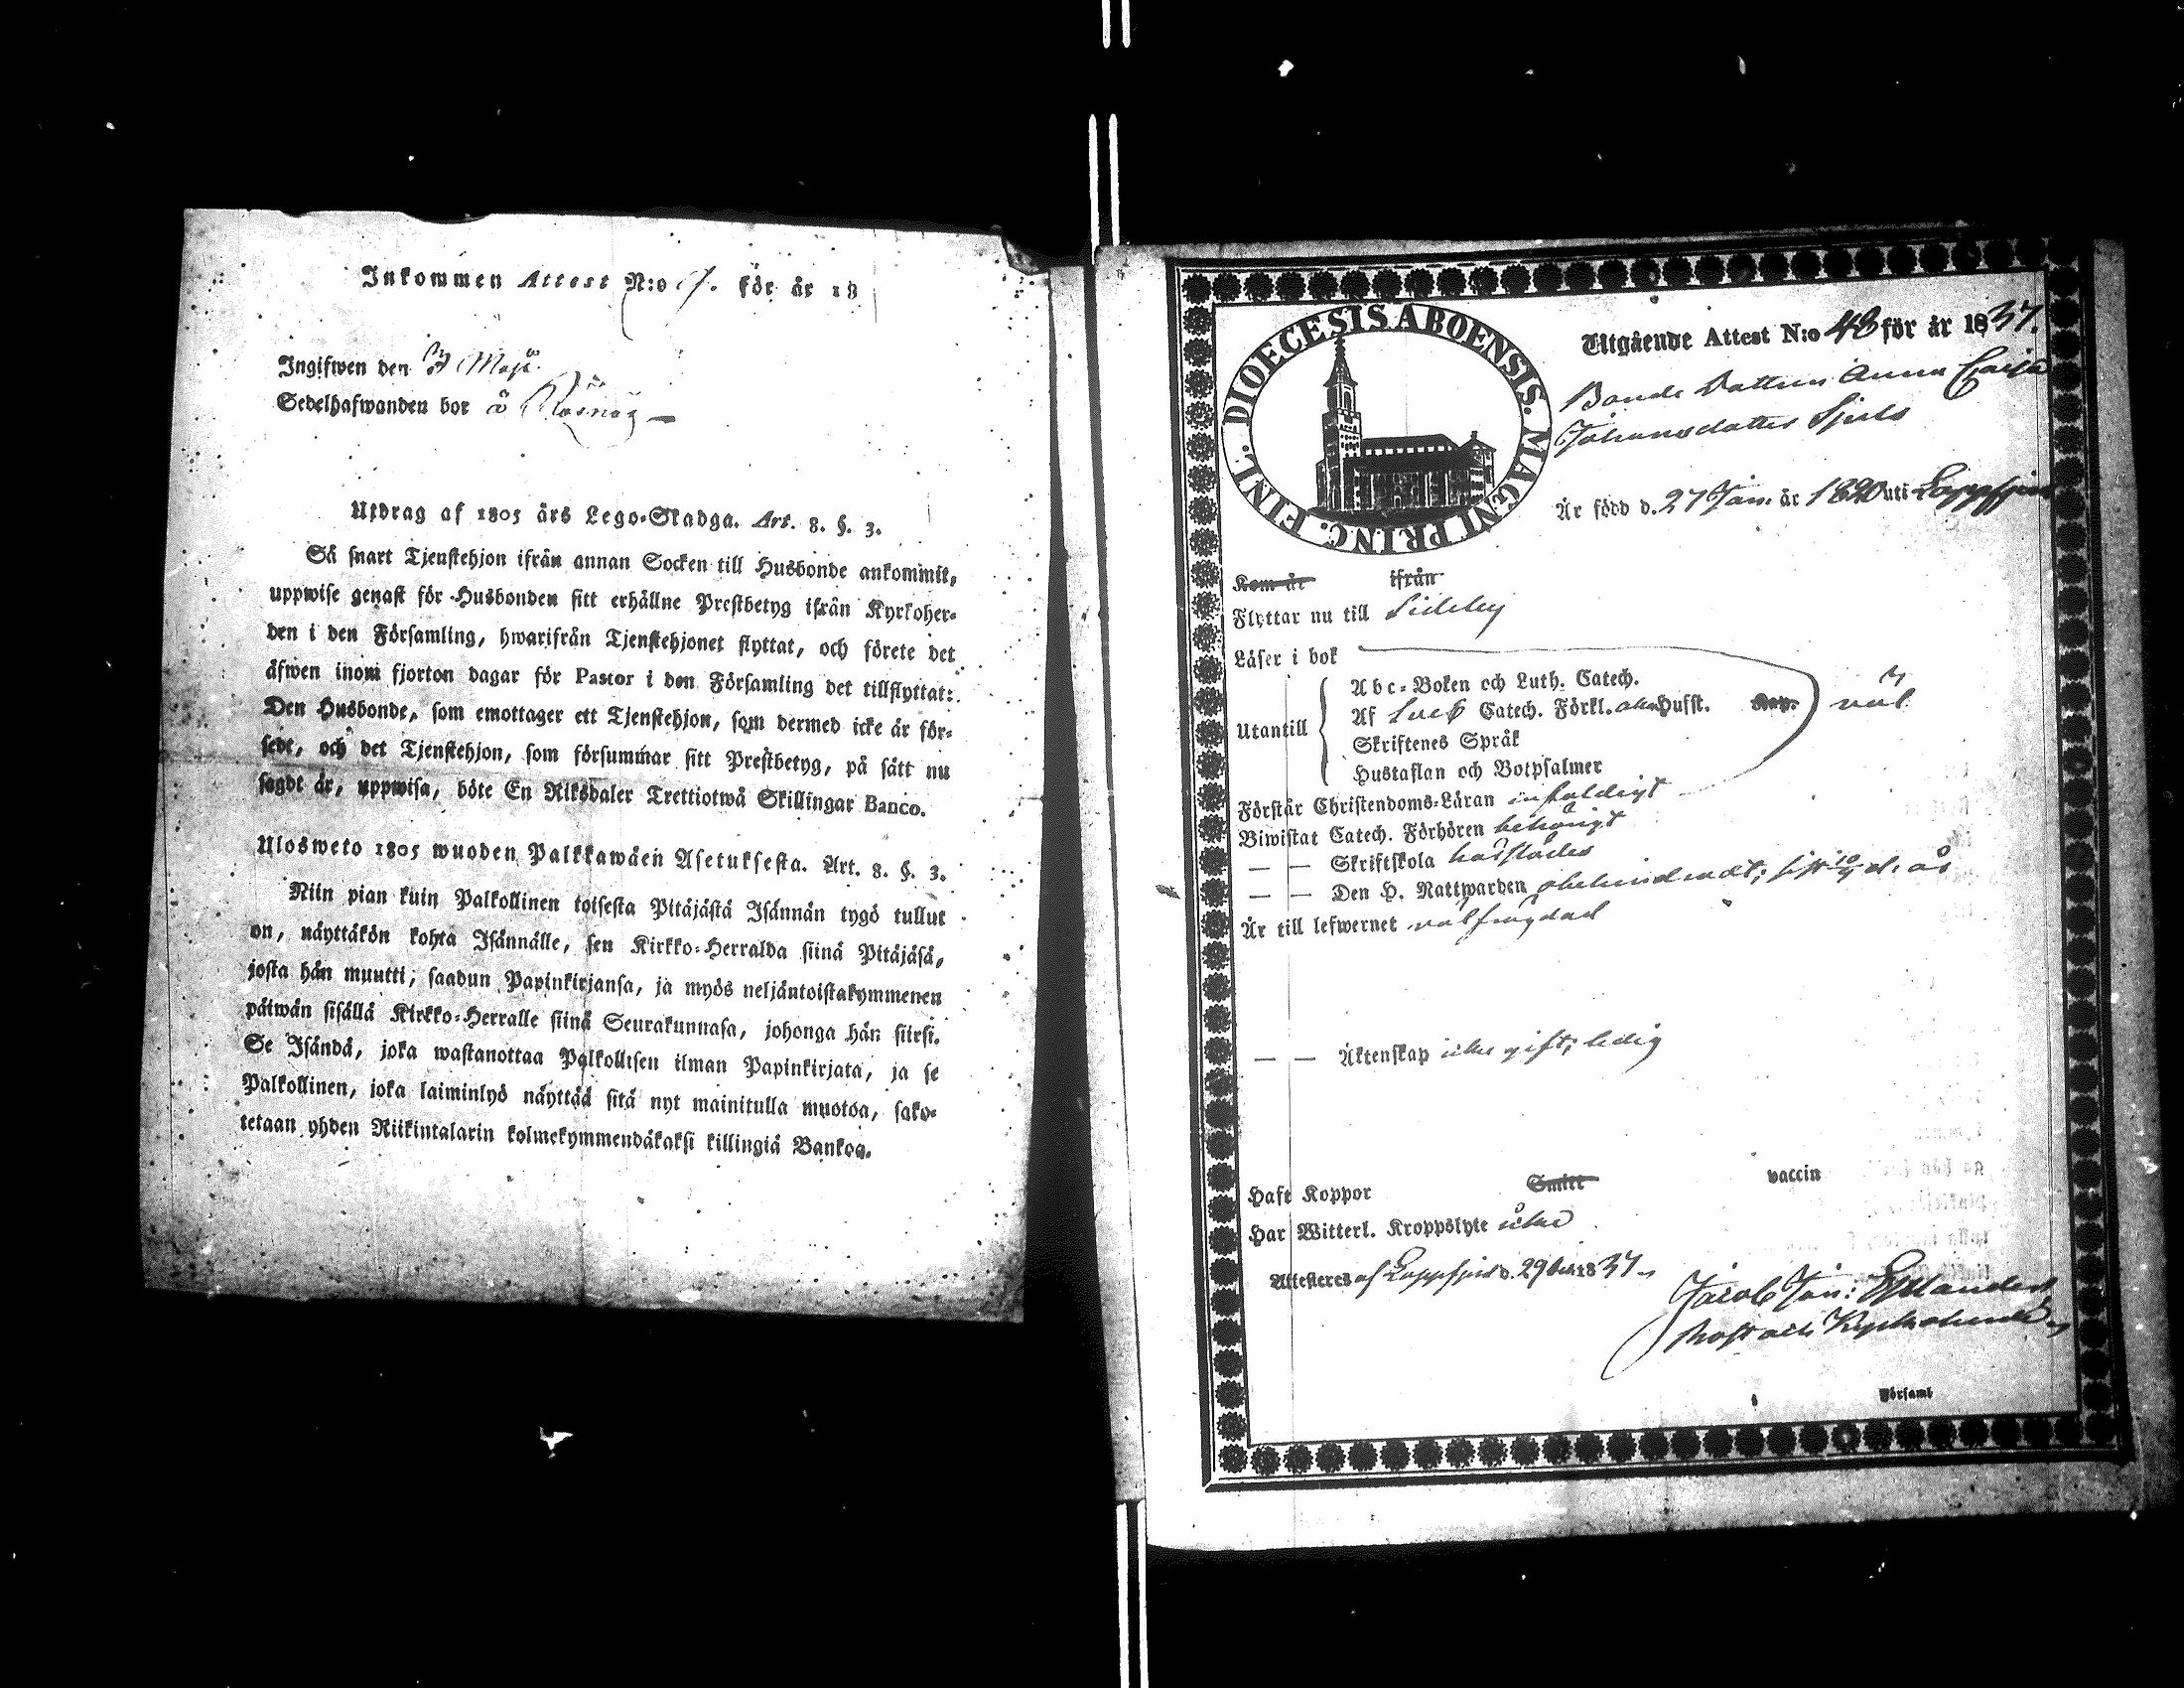 Inkommen Attest N:o 7. för år 18
Ingifwen den Maji
Sedelhafwanden bor å
Utdrag af 1805 års Lego-Stadga. Art. 8. §. 3.
Så snart Tjenstehjon ifrån annan Socken till Husbonde ankommit,
uppwise genast för Husbonden sitt erhållne Prestbetyg ifrån Kyrkoher-
den i den Församling, hwarifrån Tjenstehjonet flyttat, och förete det
äfwen inom fjorton dagar för Pastor i den Församling det tillflyttat:
Den Husbonde, som emottager ett Tjenstehjon, som dermed icke är för-
sedt, och det Tjenstehjon, som försummar sitt Prestbetyg, på sätt nu
sagdt är, uppwisa, böte En Riksdaler Trettiotwå Skillingar Banco.
Ulosweto 1805 wuoden Palkkawäen Asetuksesta. Art. 8. §. 3.
Niin pian kuin Palkollinen toisesta Pitäjästä Isännän tygö tullut
on, näyttäkön kohta Isännälle, sen Kirkko-Herralda siinä Pitäjäsä,
josta hän muutti, saadun Papinkirjansa, ja myös neljäntoistakymmenen
päiwän sisällä Kirkko-Herralle siinä Seurakunnasa, johonga hän siirsi.
Se Isändä, joka wastanottaa Palkollisen ilman Papinkirjata, ja se
Palkollinen, joka laiminlyö näyttää sitä nyt mainitulla muotoa, sako-
tetaan yhden Riikintalarin kolmekymmendäkaksi killingiä Bankoa.
DIOECESIS ABOENSIS. MAGNI PRINC. FINL.
Utgående Attest N:o 48 för år 1837.
Bonde Dottren Anna Caisa
Johansdotter
Är född d. 27 Jan. är 1820 uti Lappfjerd
Kom år ifrån
Flyttar nu till Sideby
Läser i bok
Utantill
Abc-Boken och Luth. Catech.
Af Catech. Förkl. Hufst. Kap.
Skriftenes Språk
Hustaflan och Botpsalmer
väl
Förstår Christendoms-Läran enfaldigt
Biwistat Catech. Förhören behörigt
— — Skriftskola härstädes
— — Den H. Nattwarden obehindradt; sist d. år
Är till lefwernet välfrägdad
— — Äktenskap icke gift; ledig
Haft Koppor Smitt vaccin
Har Witterl. Kroppslyte icke
Attesteres af Lappfjerd d. 29 1837
Jacob Jon:
Prost och Kyrkoherde
Församl